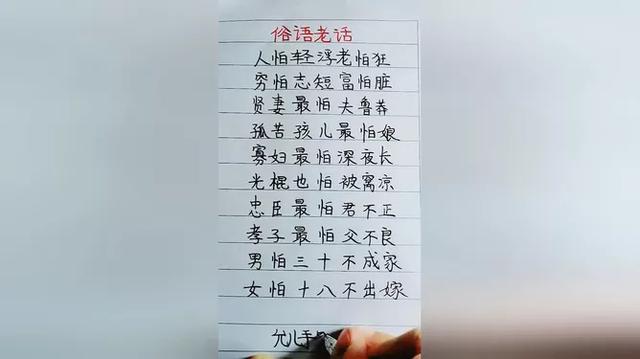 俗语老话
人怕轻浮老怕狂
穷怕志短富怕脏
贤妻最怕夫鲁莽
孤苦孩儿最怕娘
寡妇最怕深夜长
光棍也怕被窝凉
忠臣最怕君不正
孝子最怕父不良
男怕三十不成家
女怕十八不出嫁
允儿手